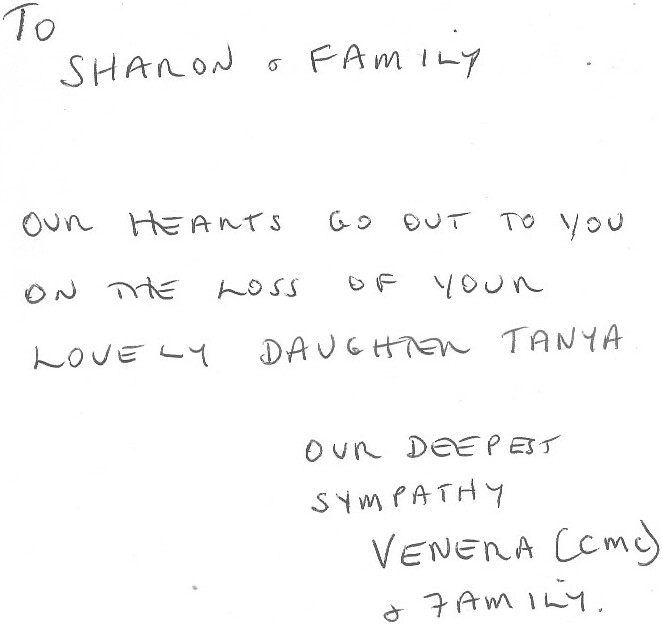 TO
SHARON & FAMILY
OUR HEARTS GO OUT TO YOU
ON THE LOSS OF YOUR
LOVELY DAUGHTER TANYA
OUR DEEPEST
SYMPATHY
VENERA (CMC)
& FAMILY.